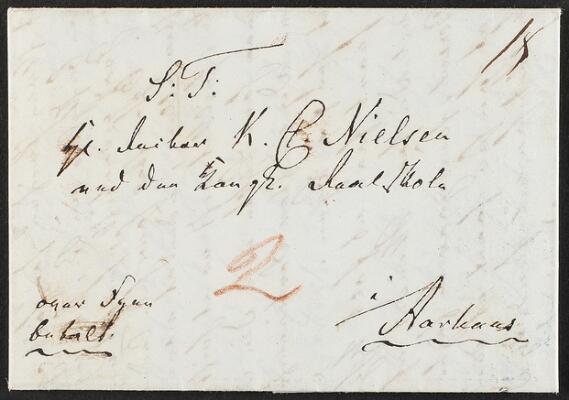 18
S: T:
Hr. Lærer K. C. Nielsen
ved den kongl. Realskole
2
over Fyen
betalt
i Aarhuus